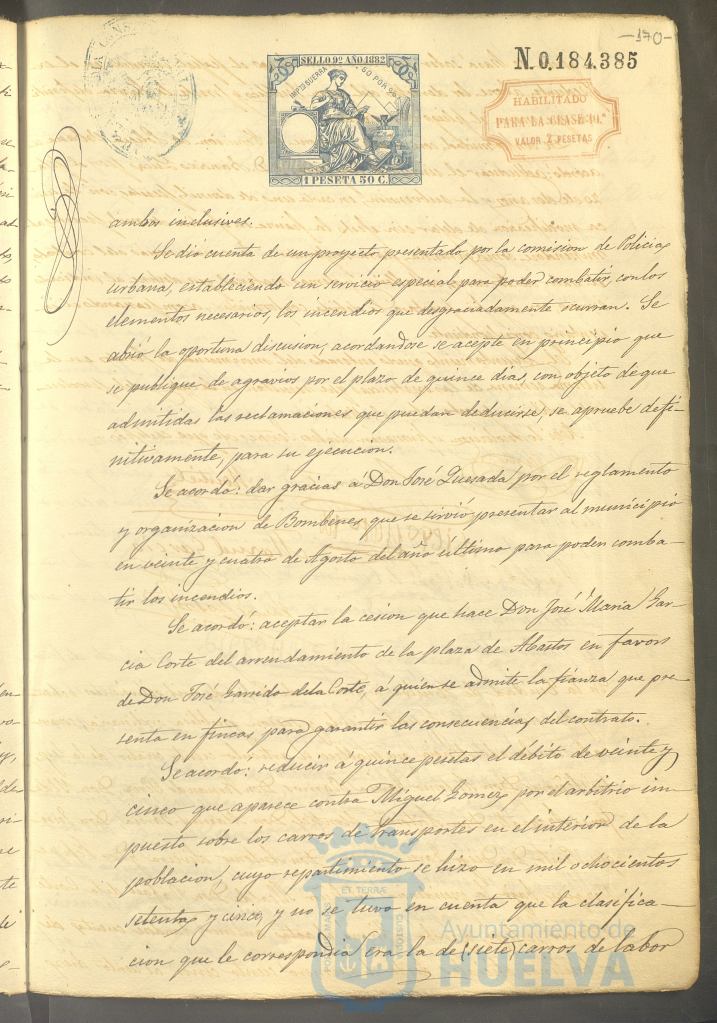 -170-
N.0.184.385
SELLO 9º AÑO 1882
IMPTO GUERRA 50 POR 100
1 PESETA 50 C.
HABILITADO
PARA LA CLASE 10.ª
VALOR 2 PESETAS
ambos inclusives.
Se dió cuenta de un proyecto presentado por la comision de Policia
urbana, estableciendo un servicio especial para poder combatir, con los
elementos necesarios, los incendios que desgraciadamente ocurran. Se
abrió la oportuna discusion, acordandose se acepte en principio que
se publique de agravios por el plazo de quince dias, con objeto de que
admitidas las reclamaciones que puedan deducirse, se apruebe defi-
nitivamente, para su ejecucion.
Se acordó: dar gracias á Don José Quesada por el reglamento
y organizacion de Bomberos que se sirvió presentar al municipio
en veinte y cuatro de Agosto del año ultimo para poder comba-
tir los incendios.
Se acordó: aceptar la cesion que hace Don José Maria Gar-
cia Corte del arrendamiento de la plaza de Abastos en favor
de Don José Garrido de la Corte, á quien se admite la fianza que pre-
senta en fincas para garantir las consecuencias del contrato.
Se acordó: reducir á quince pesetas el débito de veinte y
cinco que aparece contra Miguel Gomez por el arbitrio im-
puesto sobre los carros de transportes en el interior de la
poblacion, cuyo repartimiento se hizo en mil ochocientos
setenta y cinco, y no se tuvo en cuenta que la clasifica-
cion que le correspondia era la de (siete) carros de labor
PORTUS MARIS
ET TERRÆ
CUSTODIA
Ayuntamiento de
HUELVA